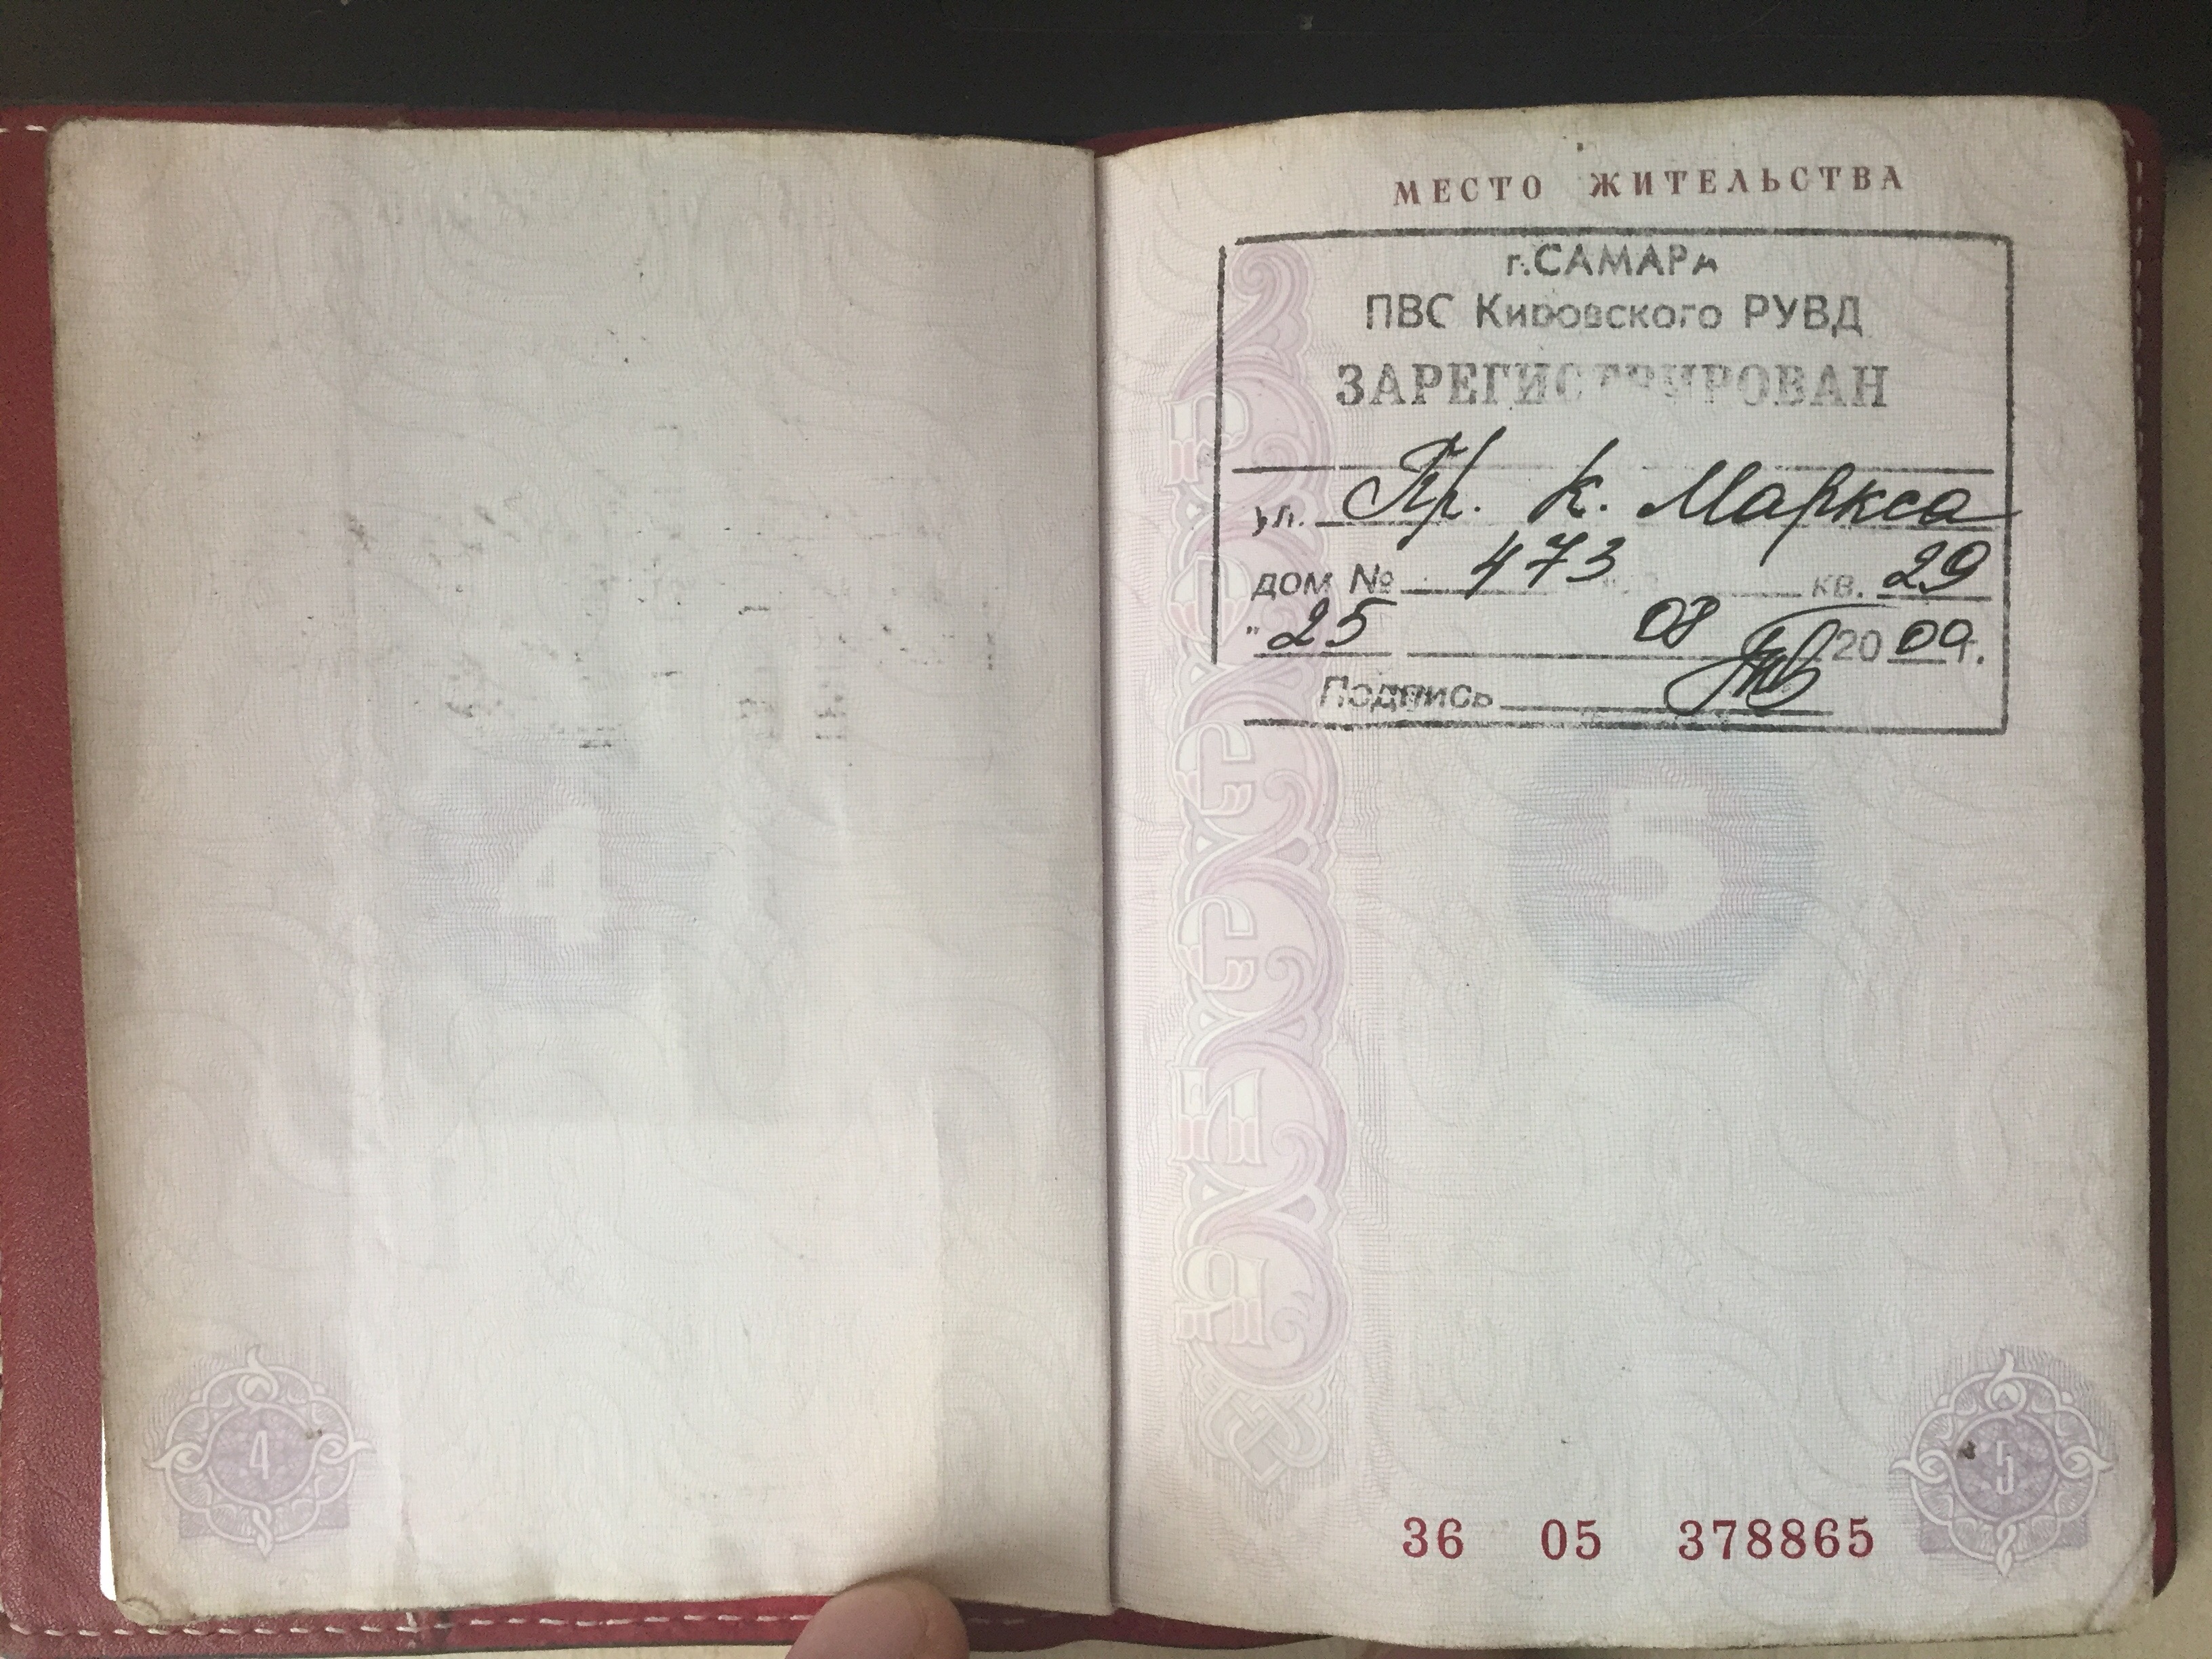 МЕСТО ЖИТЕЛЬСТВА
г.САМАРА
ПВС Кировского РУВД
ЗАРЕГИСТРИРОВАН
ул. Пр. К. Маркса
дом № 473 кв. 29
"25 08 2009г.
Подпись
4
5
4
5
36 05 378865